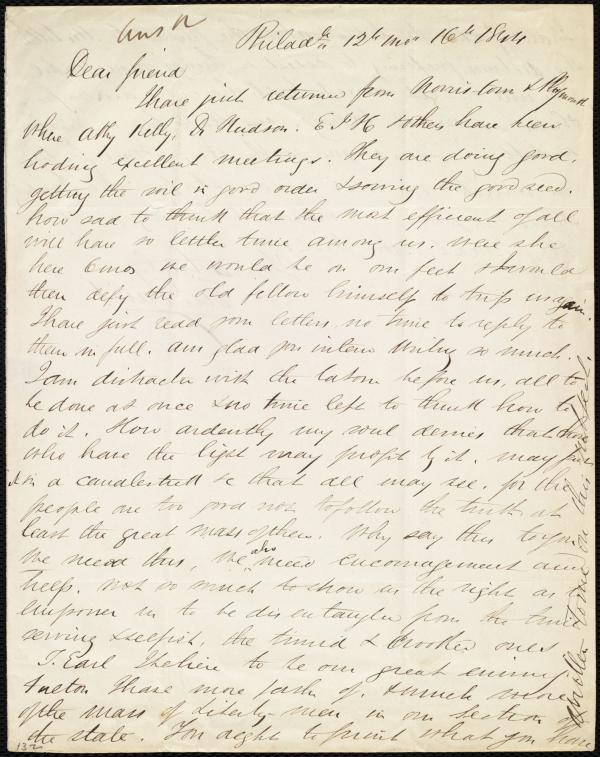 Ansd
Philada 12th mo 16th 1844
Dear friend
I have just returned from Norristown & Plymouth
where Abby Kelly, Dr Hudson. E J H & others have been
holding excellent meetings. They are doing good,
getting the soil in good order & sowing the good seed.
how sad to think that the most efficient of all
will have so little time among us. were she
here 6 mos we would be on our feet & would
then defy the old fellow himself to trip us again.
I have just read your letters, no time to reply to
them in full. am glad you intend writing so much.
I am distracted with the labour before us, all to
be done at once & no time left to think how to
do it. How ardently my soul desires that those
who have the light may profit by it. may put
it on a candlestick so that all may see. for the
people are too good not to follow the truth at
least the great mass of them. Why say this to you
We need this, We also need encouragement and
help. not so much to show us the right as to
empower us to be disentangled from the time
serving & selfish, the timid & crooked ones.
T. Earl I believe to be our great enemy
I have more faith of. & much more
of the mass of Liberty-men in our section of
the state. You ought to print what you have
written to me on this subject.
132